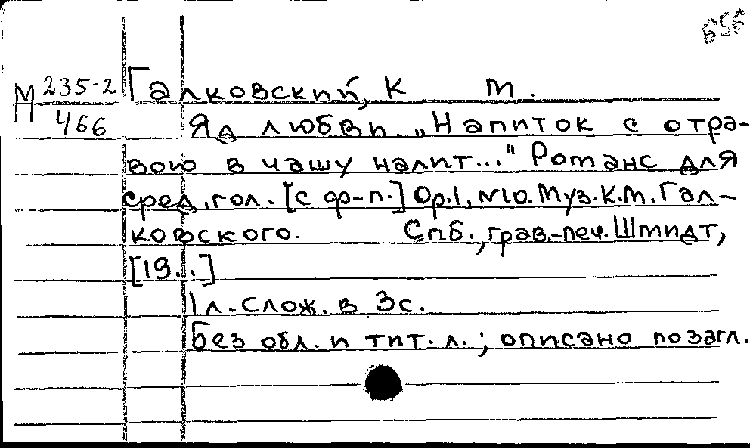 656
М 235-2
466
Галковский, К М.
Яд любви. „Напиток с отра-
вою в чашу налит..." Романс для
сред. гол. [с ф-п.] Op.1, №10. Муз. К.М. Гал-
ковского. Спб., грав.-печ. Шмидт,
[19..]
1 л. слож. в 3с.
Без обл. и тит. л.; описано по загл.